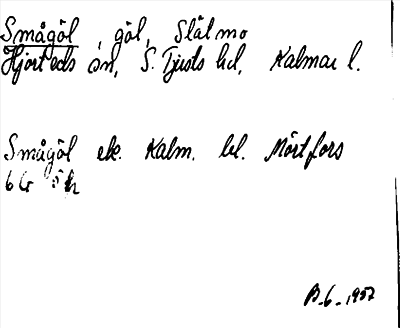 Smågöl, göl, Slätmo
Hjorteds sn, S. Tjusts hd, Kalmar l.
Smågöl ek. Kalm. bl. Mörtfors
6 G
1957